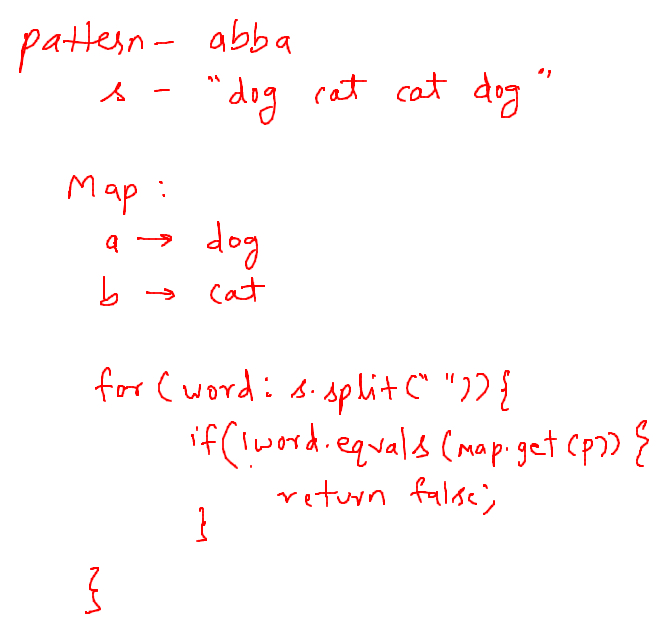 pattern - abba
s - "dog cat cat dog"
Map :
a → dog
b → cat
for (word : s.split(" ")) {
if(!word.equals (map.get(p)) {
return false;
}
}